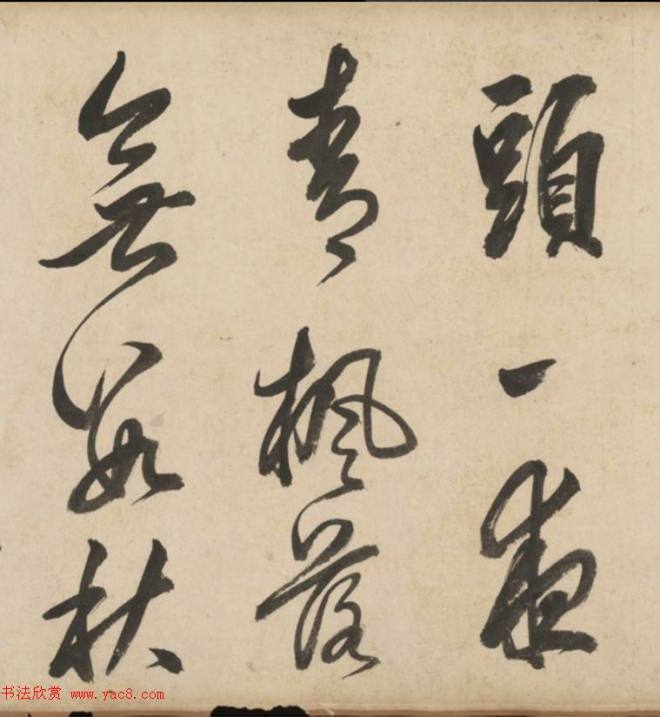 頭一夜
青楓落
無數秋
书法欣赏 www.yac8.com